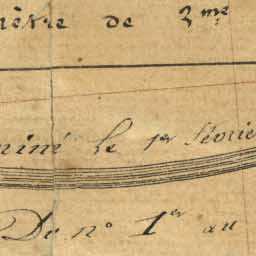 ière de 3me
miné le 1er févrie
Du n° 1er au